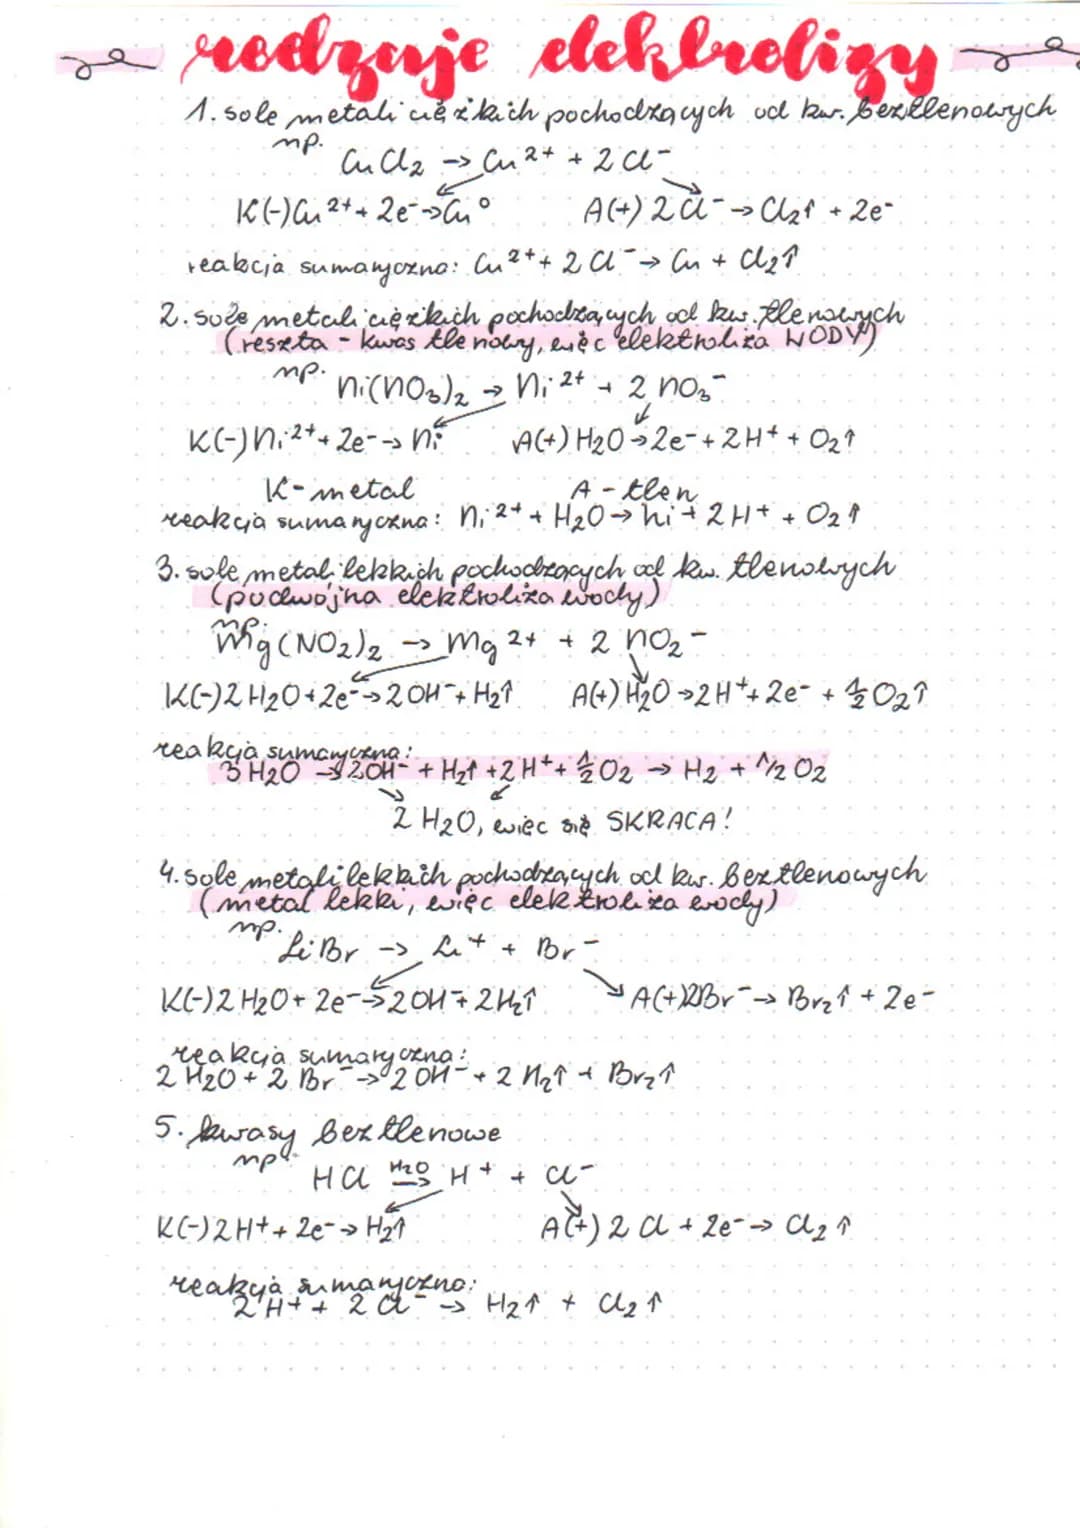 rodzaje elektrolizy
1. sole metali ciężkich pochodzących od kw. beztlenowych
np.
CuCl₂ → Cu²⁺ + 2Cl⁻
K(-) Cu²⁺ + 2e⁻ → Cu⁰ A(+) 2Cl⁻ → Cl₂↑ + 2e⁻
reakcja sumaryczna: Cu²⁺ + 2Cl⁻ → Cu + Cl₂↑
2. sole metali ciężkich pochodzących od kw. tlenowych
(reszta - kwas tlenowy, więc elektroliza WODY)
np.
Ni(NO₃)₂ → Ni²⁺ + 2 NO₃⁻
K(-) Ni²⁺ + 2e⁻ → Ni⁰ A(+) H₂O → 2e⁻ + 2H⁺ + O₂↑
K - metal A - tlen
reakcja sumaryczna: Ni²⁺ + H₂O → Ni + 2H⁺ + O₂↑
3. sole metali lekkich pochodzących od kw. tlenowych
(podwójna elektroliza wody)
np.
Mg(NO₂)₂ → Mg²⁺ + 2 NO₂⁻
K(-) 2H₂O + 2e⁻ → 2OH⁻ + H₂↑ A(+) H₂O → 2H⁺ + 2e⁻ + ½O₂↑
reakcja sumaryczna:
3H₂O → 2OH⁻ + H₂↑ + 2H⁺ + ½O₂ → H₂ + 1/2 O₂
2 H₂O, więc się SKRACA!
4. sole metali lekkich pochodzących od kw. beztlenowych
(metal lekki, więc elektroliza wody)
np.
LiBr → Li⁺ + Br⁻
K(-) 2H₂O + 2e⁻ → 2OH⁻ + 2H₂↑ A(+) 2Br⁻ → Br₂↑ + 2e⁻
reakcja sumaryczna:
2H₂O + 2Br⁻ → 2OH⁻ + 2H₂↑ + Br₂↑
5. kwasy beztlenowe
np.
HCl H₂O→ H⁺ + Cl⁻
K(-) 2H⁺ + 2e⁻ → H₂↑ A(+) 2Cl + 2e⁻ → Cl₂↑
reakcja sumaryczna:
2H⁺ + 2Cl⁻ → H₂↑ + Cl₂↑